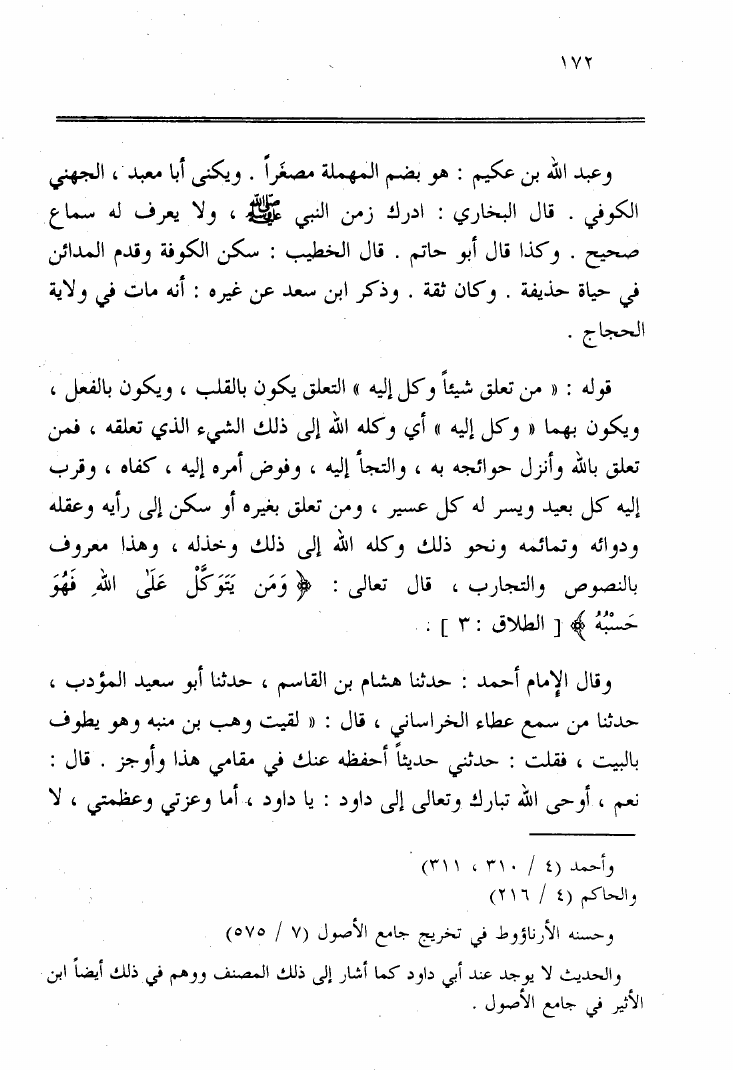 ١٧٢
وعبد الله بن عكيم : هو بضم المهملة مصغَراً . ويكنى أبا معبد ، الجهني
الكوفي . قال البخاري : ادرك زمن النبي ﷺ ، ولا يعرف له سماع
صحيح . وكذا قال أبو حاتم . قال الخطيب : سكن الكوفة وقدم المدائن
في حياة حذيفة . وكان ثقة . وذكر ابن سعد عن غيره : أنه مات في ولاية
الحجاج .
قوله : « من تعلق شيئاً وكل إليه » التعلق يكون بالقلب ، ويكون بالفعل ،
ويكون بهما « وكل إليه » أي وكله الله إلى ذلك الشيء الذي تعلقه ، فمن
تعلق بالله وأنزل حوائجه به ، والتجأ إليه ، وفوض أمره إليه ، كفاه ، وقرب
إليه كل بعيد ويسر له كل عسير ، ومن تعلق بغيره أو سكن إلى رأيه وعقله
ودوائه وتمائمه ونحو ذلك وكله الله إلى ذلك وخذله ، وهذا معروف
بالنصوص والتجارب ، قال تعالى : ﴿ وَمَن يَتَوَكَّلْ عَلَى اللهِ فَهُوَ
حَسْبُهُ ﴾ [ الطلاق : ٣ ] .
وقال الإمام أحمد : حدثنا هشام بن القاسم ، حدثنا أبو سعيد المؤدب ،
حدثنا من سمع عطاء الخراساني ، قال : « لقيت وهب بن منبه وهو يطوف
بالبيت ، فقلت : حدثني حديثاً أحفظه عنك في مقامي هذا وأوجز . قال :
نعم ، أوحى الله تبارك وتعالى إلى داود : يا داود ، أما وعزتي وعظمتي ، لا
وأحمد (٤ / ٣١٠ ، ٣١١)
والحاكم (٤ / ٢١٦)
وحسنه الأرناؤوط في تخريج جامع الأصول (٧ / ٥٧٥)
والحديث لا يوجد عند أبي داود كما أشار إلى ذلك المصنف ووهم في ذلك أيضاً ابن
الأثير في جامع الأصول .